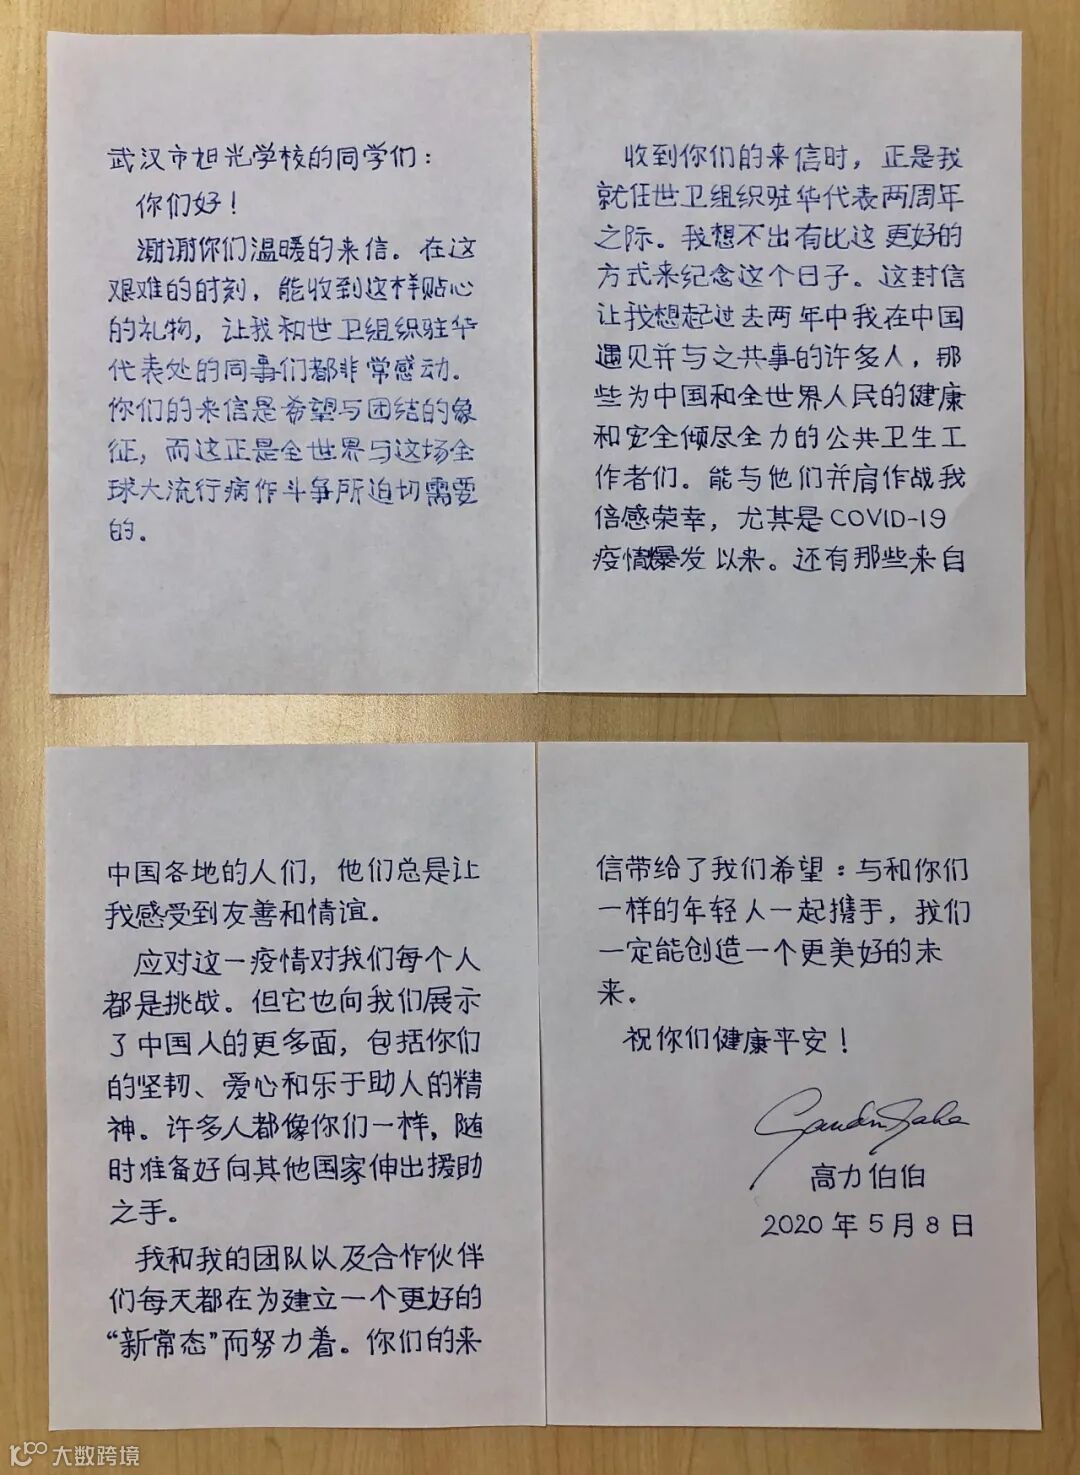 武汉市旭光学校的同学们：
你们好！
谢谢你们温暖的来信。在这
艰难的时刻，能收到这样贴心
的礼物，让我和世卫组织驻华
代表处的同事们都非常感动。
你们的来信是希望与团结的象
征，而这正是全世界与这场全
球大流行病作斗争所迫切需要
的。
收到你们的来信时，正是我
就任世卫组织驻华代表两周年
之际。我想不出有比这更好的
方式来纪念这个日子。这封信
让我想起过去两年中我在中国
遇见并与之共事的许多人，那
些为中国和全世界人民的健康
和安全倾尽全力的公共卫生工
作者们。能与他们并肩作战我
倍感荣幸，尤其是COVID-19
疫情爆发以来。还有那些来自
中国各地的人们，他们总是让
我感受到友善和情谊。
应对这一疫情对我们每个人
都是挑战。但它也向我们展示
了中国人的更多面，包括你们
的坚韧、爱心和乐于助人的精
神。许多人都像你们一样，随
时准备好向其他国家伸出援助
之手。
我和我的团队以及合作伙伴
们每天都在为建立一个更好的
“新常态”而努力着。你们的来
信带给了我们希望：与和你们
一样的年轻人一起携手，我们
一定能创造一个更美好的未
来。
祝你们健康平安！
高力伯伯
2020年5月8日
大数跨境